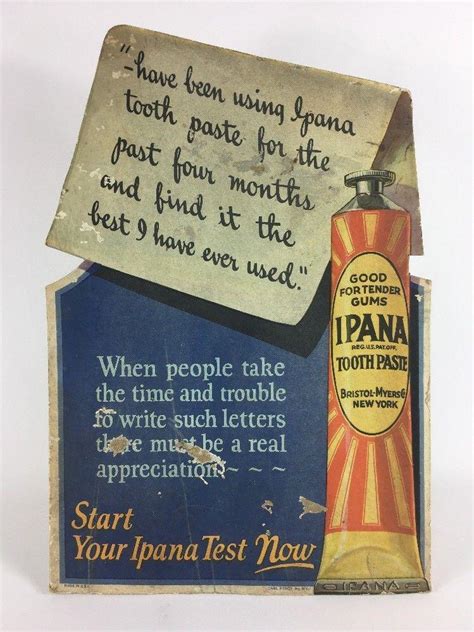 "-have been using Ipana
tooth paste for the
past four months
and find it the
best I have ever used."
GOOD
FOR TENDER
GUMS
IPANA
REG. U.S. PAT. OFF.
TOOTH PASTE
BRISTOL-MYERS Co
NEW YORK
When people take
the time and trouble
to write such letters
there must be a real
appreciation ~ ~ ~
Start
Your Ipana Test Now
IPANA